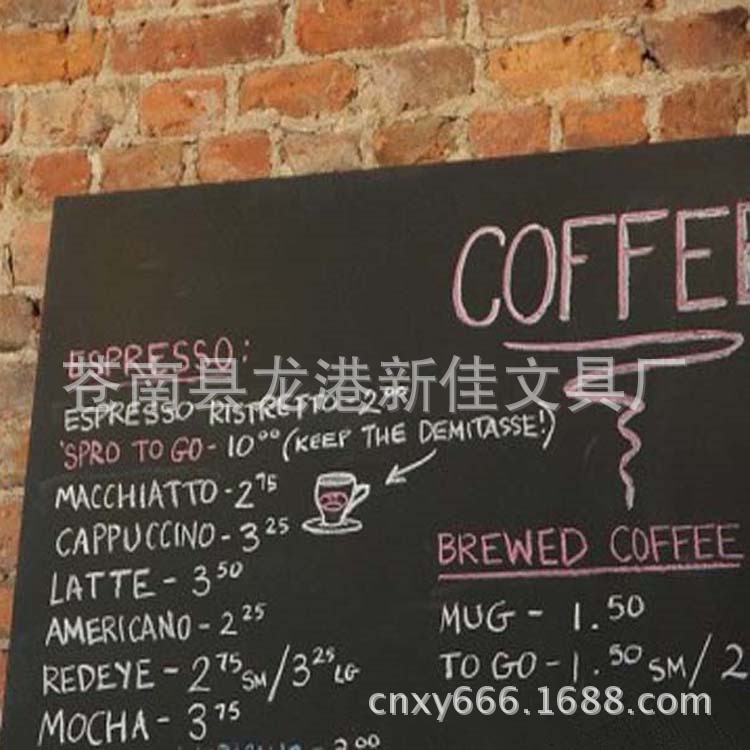 COFFEE
ESPRESSO:
苍南县龙港新佳文具厂
ESPRESSO RISTRETTO - 2⁰⁰
'SPRO TO GO - 10⁰⁰ (KEEP THE DEMITASSE!)
MACCHIATTO - 2⁷⁵
CAPPUCCINO - 3²⁵
LATTE - 3⁵⁰
AMERICANO - 2²⁵
REDEYE - 2⁷⁵ SM / 3²⁵ LG
MOCHA - 3⁷⁵
2⁰⁰
BREWED COFFEE
MUG - 1.50
TO GO - 1.50 SM / 2
cnxy666.1688.com